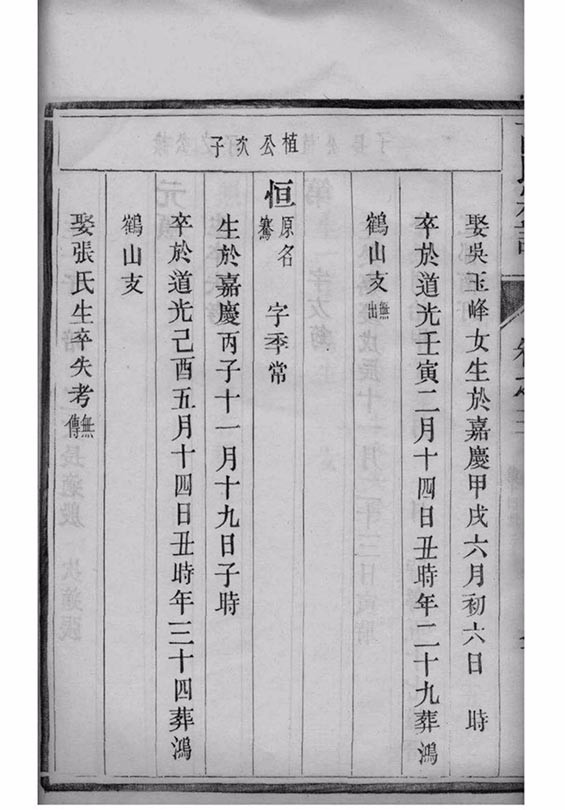 娶吳玉峰女生於嘉慶甲戌六月初六日　時
卒於道光壬寅二月十四日丑時年二十九葬鴻
鶴山支無出
植公次子
恒原名騫　字季常
生於嘉慶丙子十一月十九日子時
卒於道光己酉五月十四日丑時年三十四葬鴻
鶴山支
娶張氏生卒失考無傳